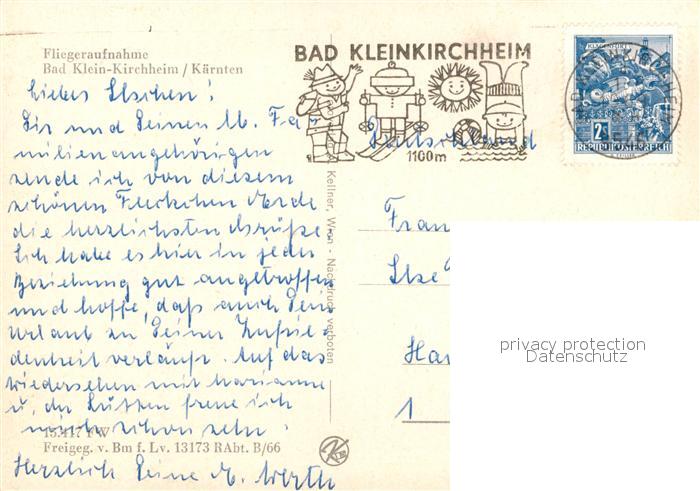 Fliegeraufnahme
Bad Klein-Kirchheim / Kärnten
Liebes Ilschen!
Dir und Deinen lb. Fa-
milienangehörigen
sende ich von diesem
schönen Fleckchen Erde
die herzlichsten Grüße.
Ich habe es hier in jeder
Beziehung gut angetroffen
und hoffe, daß auch Dein
Urlaub zu Deiner Zufrie-
denheit verläuft. Auf das
Wiedersehen mit Marianne
u. der freue ich
mich schon sehr.
Herzlich Deine
13.417 FW
Freigeg. v. Bm f. Lv. 13173 RAbt. B/66
Kellner, Wien - Nachdruck verboten
BAD KLEINKIRCHHEIM
1100m
KLAGENFURT
2S
REPUBLIK ÖSTERREICH
Deutschland
Frau
Ilse
Ha
1
privacy protection
Datenschutz